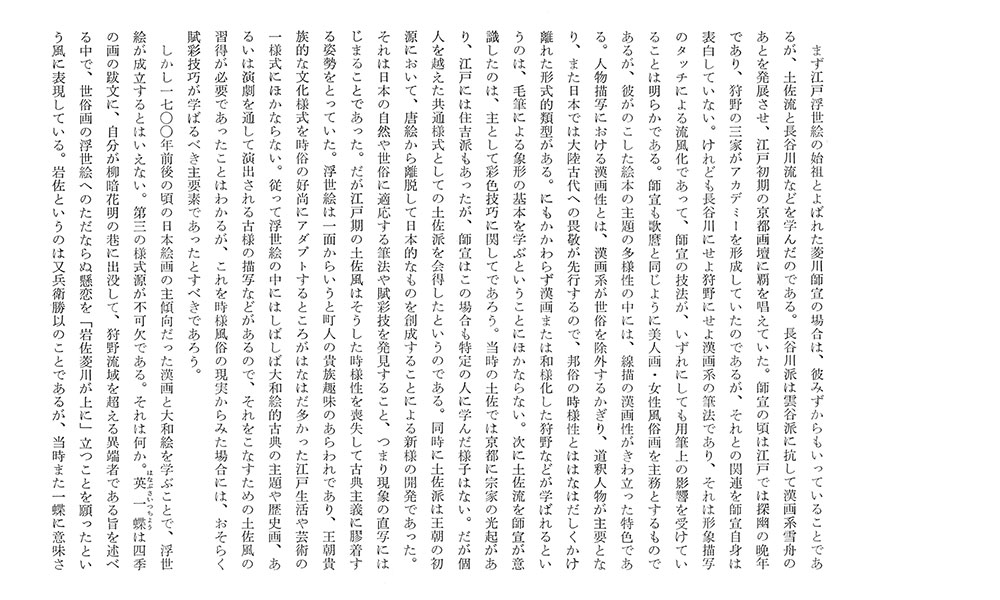 まず江戸浮世絵の始祖とよばれた菱川師宣の場合は、彼みずからもいっていることであ
るが、土佐流と長谷川流などを学んだのである。長谷川派は雲谷派に抗して漢画系雪舟の
あとを発展させ、江戸初期の京都画壇に覇を唱えていた。師宣の頃は江戸では探幽の晩年
であり、狩野の三家がアカデミーを形成していたのであるが、それとの関連を師宣自身は
表白していない。けれども長谷川にせよ狩野にせよ漢画系の筆法であり、それは形象描写
のタッチによる流風化であって、師宣の技法が、いずれにしても用筆上の影響を受けてい
ることは明らかである。師宣も歌麿と同じように美人画・女性風俗画を主務とするもので
あるが、彼がのこした絵本の主題の多様性の中には、線描の漢画性がきわ立った特色であ
る。人物描写における漢画性とは、漢画系が世俗を除外するかぎり、道釈人物が主要とな
り、また日本では大陸古代への畏敬が先行するので、邦俗の時様性とははなはだしくかけ
離れた形式的類型がある。にもかかわらず漢画または和様化した狩野などが学ばれるとい
うのは、毛筆による象形の基本を学ぶということにほかならない。次に土佐流を師宣が意
識したのは、主として彩色技巧に関してであろう。当時の土佐では京都に宗家の光起があ
り、江戸には住吉派もあったが、師宣はこの場合も特定の人に学んだ様子はない。だが個
人を越えた共通様式としての土佐派を会得したというのである。同時に土佐派は王朝の初
源において、唐絵から離脱して日本的なものを創成することによる新様の開発であった。
それは日本の自然や世俗に適応する筆法や賦彩技を発見すること、つまり現象の直写には
じまることであった。だが江戸期の土佐風はそうした時様性を喪失して古典主義に膠着す
る姿勢をとっていた。浮世絵は一面からいうと町人の貴族趣味のあらわれであり、王朝貴
族的な文化様式を時俗の好尚にアダプトするところがはなはだ多かった江戸生活や芸術の
一様式にほかならない。従って浮世絵の中にはしばしば大和絵的古典の主題や歴史画、あ
るいは演劇を通して演出される古様の描写などがあるので、それをこなすための土佐風の
習得が必要であったことはわかるが、これを時様風俗の現実からみた場合には、おそらく
賦彩技巧が学ばるべき主要素であったとすべきであろう。
しかし一七〇〇年前後の頃の日本絵画の主傾向だった漢画と大和絵を学ぶことで、浮世
絵が成立するとはいえない。第三の様式源が不可欠である。それは何か。英一蝶は四季
はなぶさいっちょう
の画の跋文に、自分が柳暗花明の巷に出没して、狩野流域を超える異端者である旨を述べ
る中で、世俗画の浮世絵へのただならぬ懸恋を「岩佐菱川が上に」立つことを願ったとい
う風に表現している。岩佐というのは又兵衛勝以のことであるが、当時また一蝶に意味さ